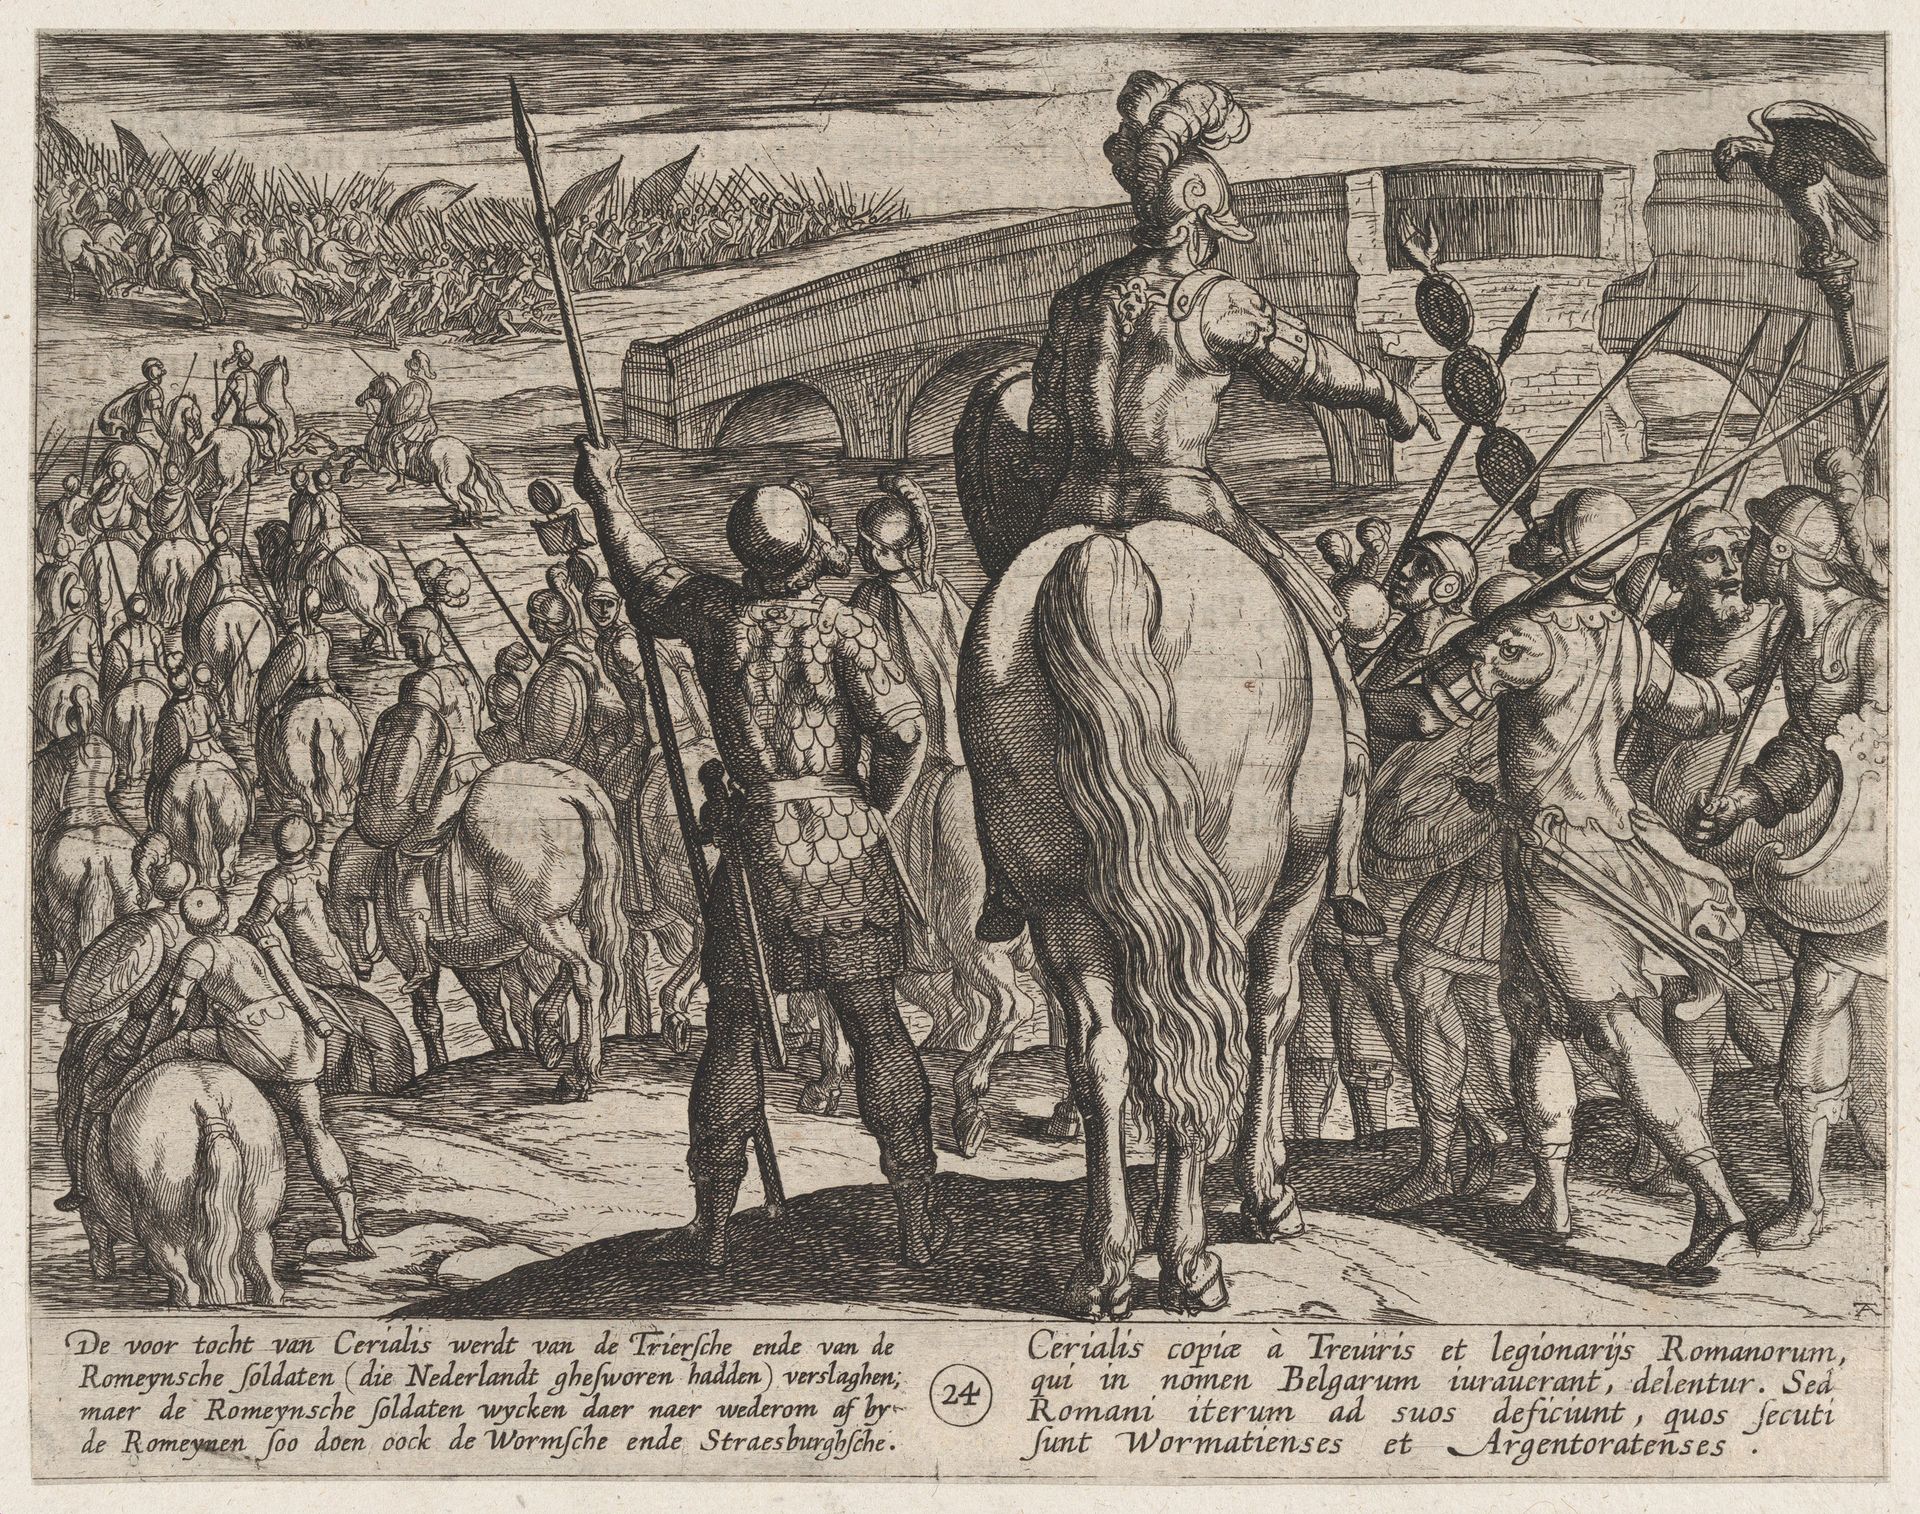 De voor tocht van Cerialis werdt van de Trierſche ende van de
Romeynſche ſoldaten (die Nederlandt gheſworen hadden) verslaghen;
maer de Romeynsche ſoldaten wycken daer naer wederom af by
de Romeynen ſoo doen oock de Wormſche ende Straesburghſche.
24
Cerialis copiæ à Treuiris et legionarijs Romanorum,
qui in nomen Belgarum iurauerant, delentur. Sed
Romani iterum ad suos deficiunt, quos ſecuti
ſunt Wormatienses et Argentoratenses.